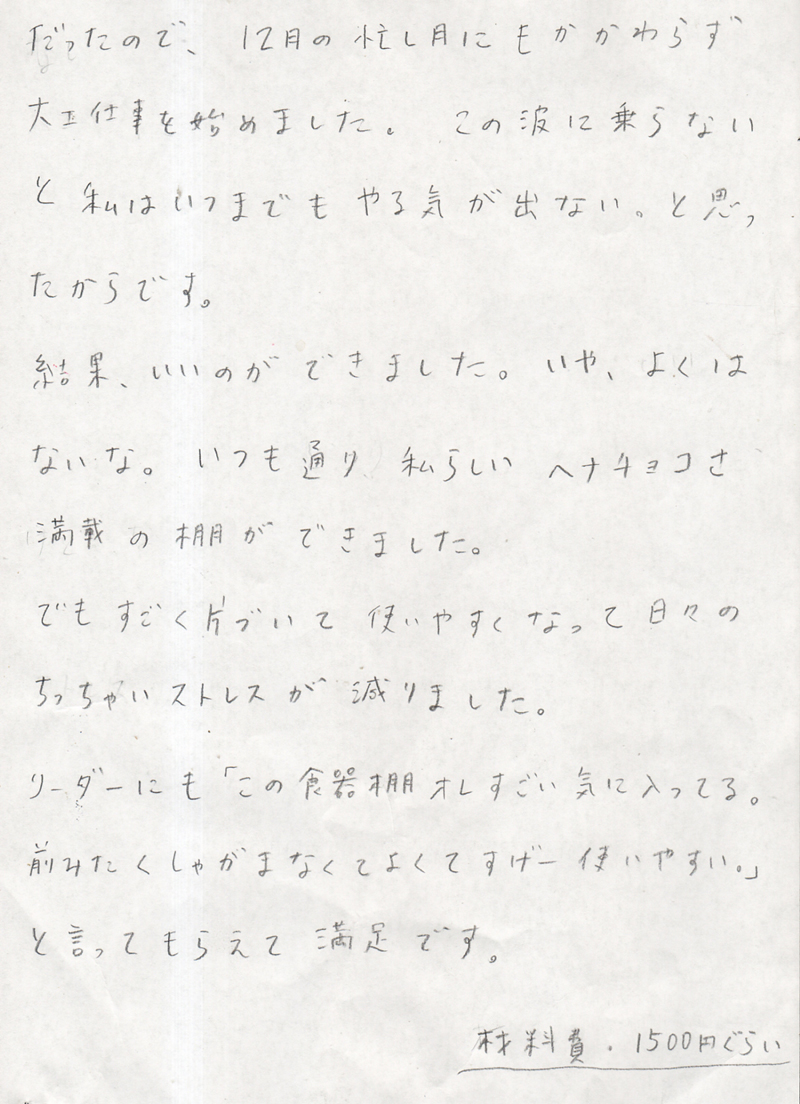 だったので、12月の忙し月にもかかわらず
大工仕事を始めました。この波に乗らない
と私はいつまでもやる気が出ない。と思っ
たからです。
結果、いいのができました。いや、よくは
ないな。いつも通り私らしいヘナチョコさ
満載の棚ができました。
でもすごく片づいて使いやすくなって日々の
ちっちゃいストレスが減りました。
リーダーにも「この食器棚オレすごい気に入ってる。
前みたくしゃがまなくてよくてすげー使いやすい。」
と言ってもらえて満足です。
材料費・1500円ぐらい